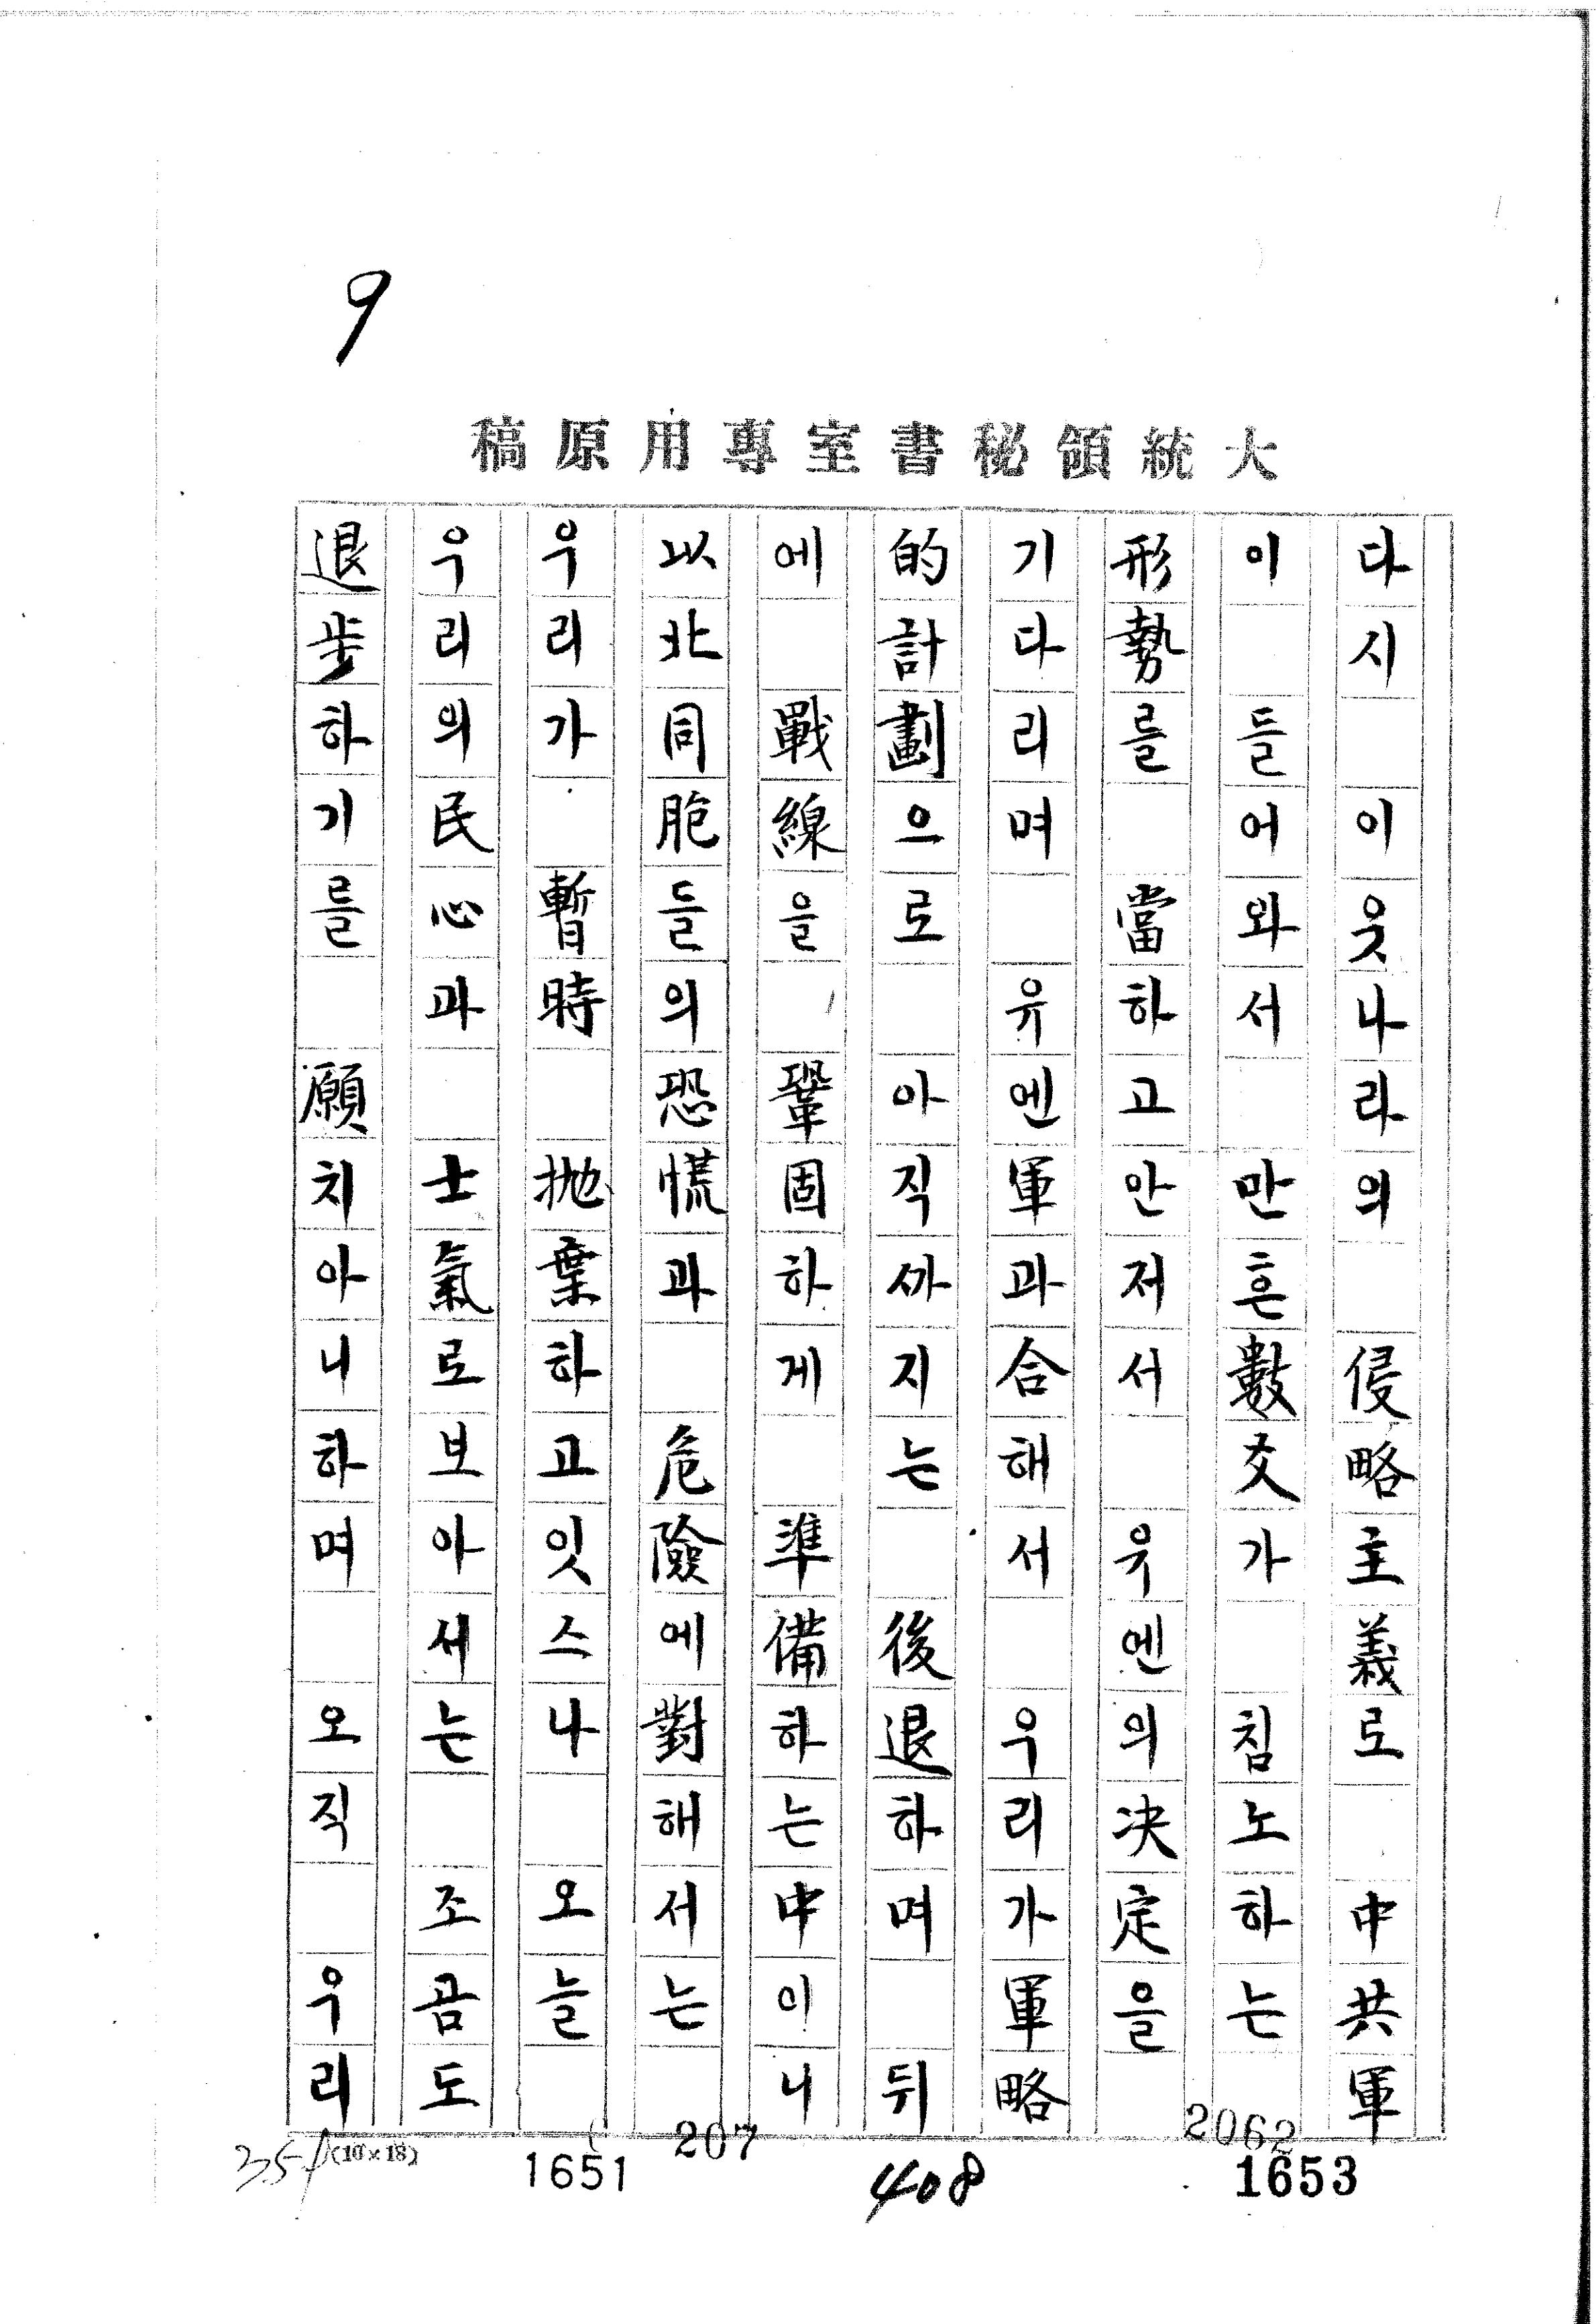 9
大統領秘書室專用原稿
다시 이웃나라의 侵略主義로 中共軍
이 들어와서 만흔數爻가 침노하는
形勢를 當하고안저서 유엔의決定을
기다리며 유엔軍과合해서 우리가軍略
的計劃으로 아직ᄭᅡ지는 後退하며 뒤
에 戰線을 鞏固하게 準備하는中이니
以北同胞들의恐慌과 危險에對해서는
우리가 暫時 抛棄하고잇스나 오늘
우리의民心과 士氣로보아서는 조곰도
退步하기를 願치아니하며 오직 우리
(10×18)
207
2062
1651
408
1653